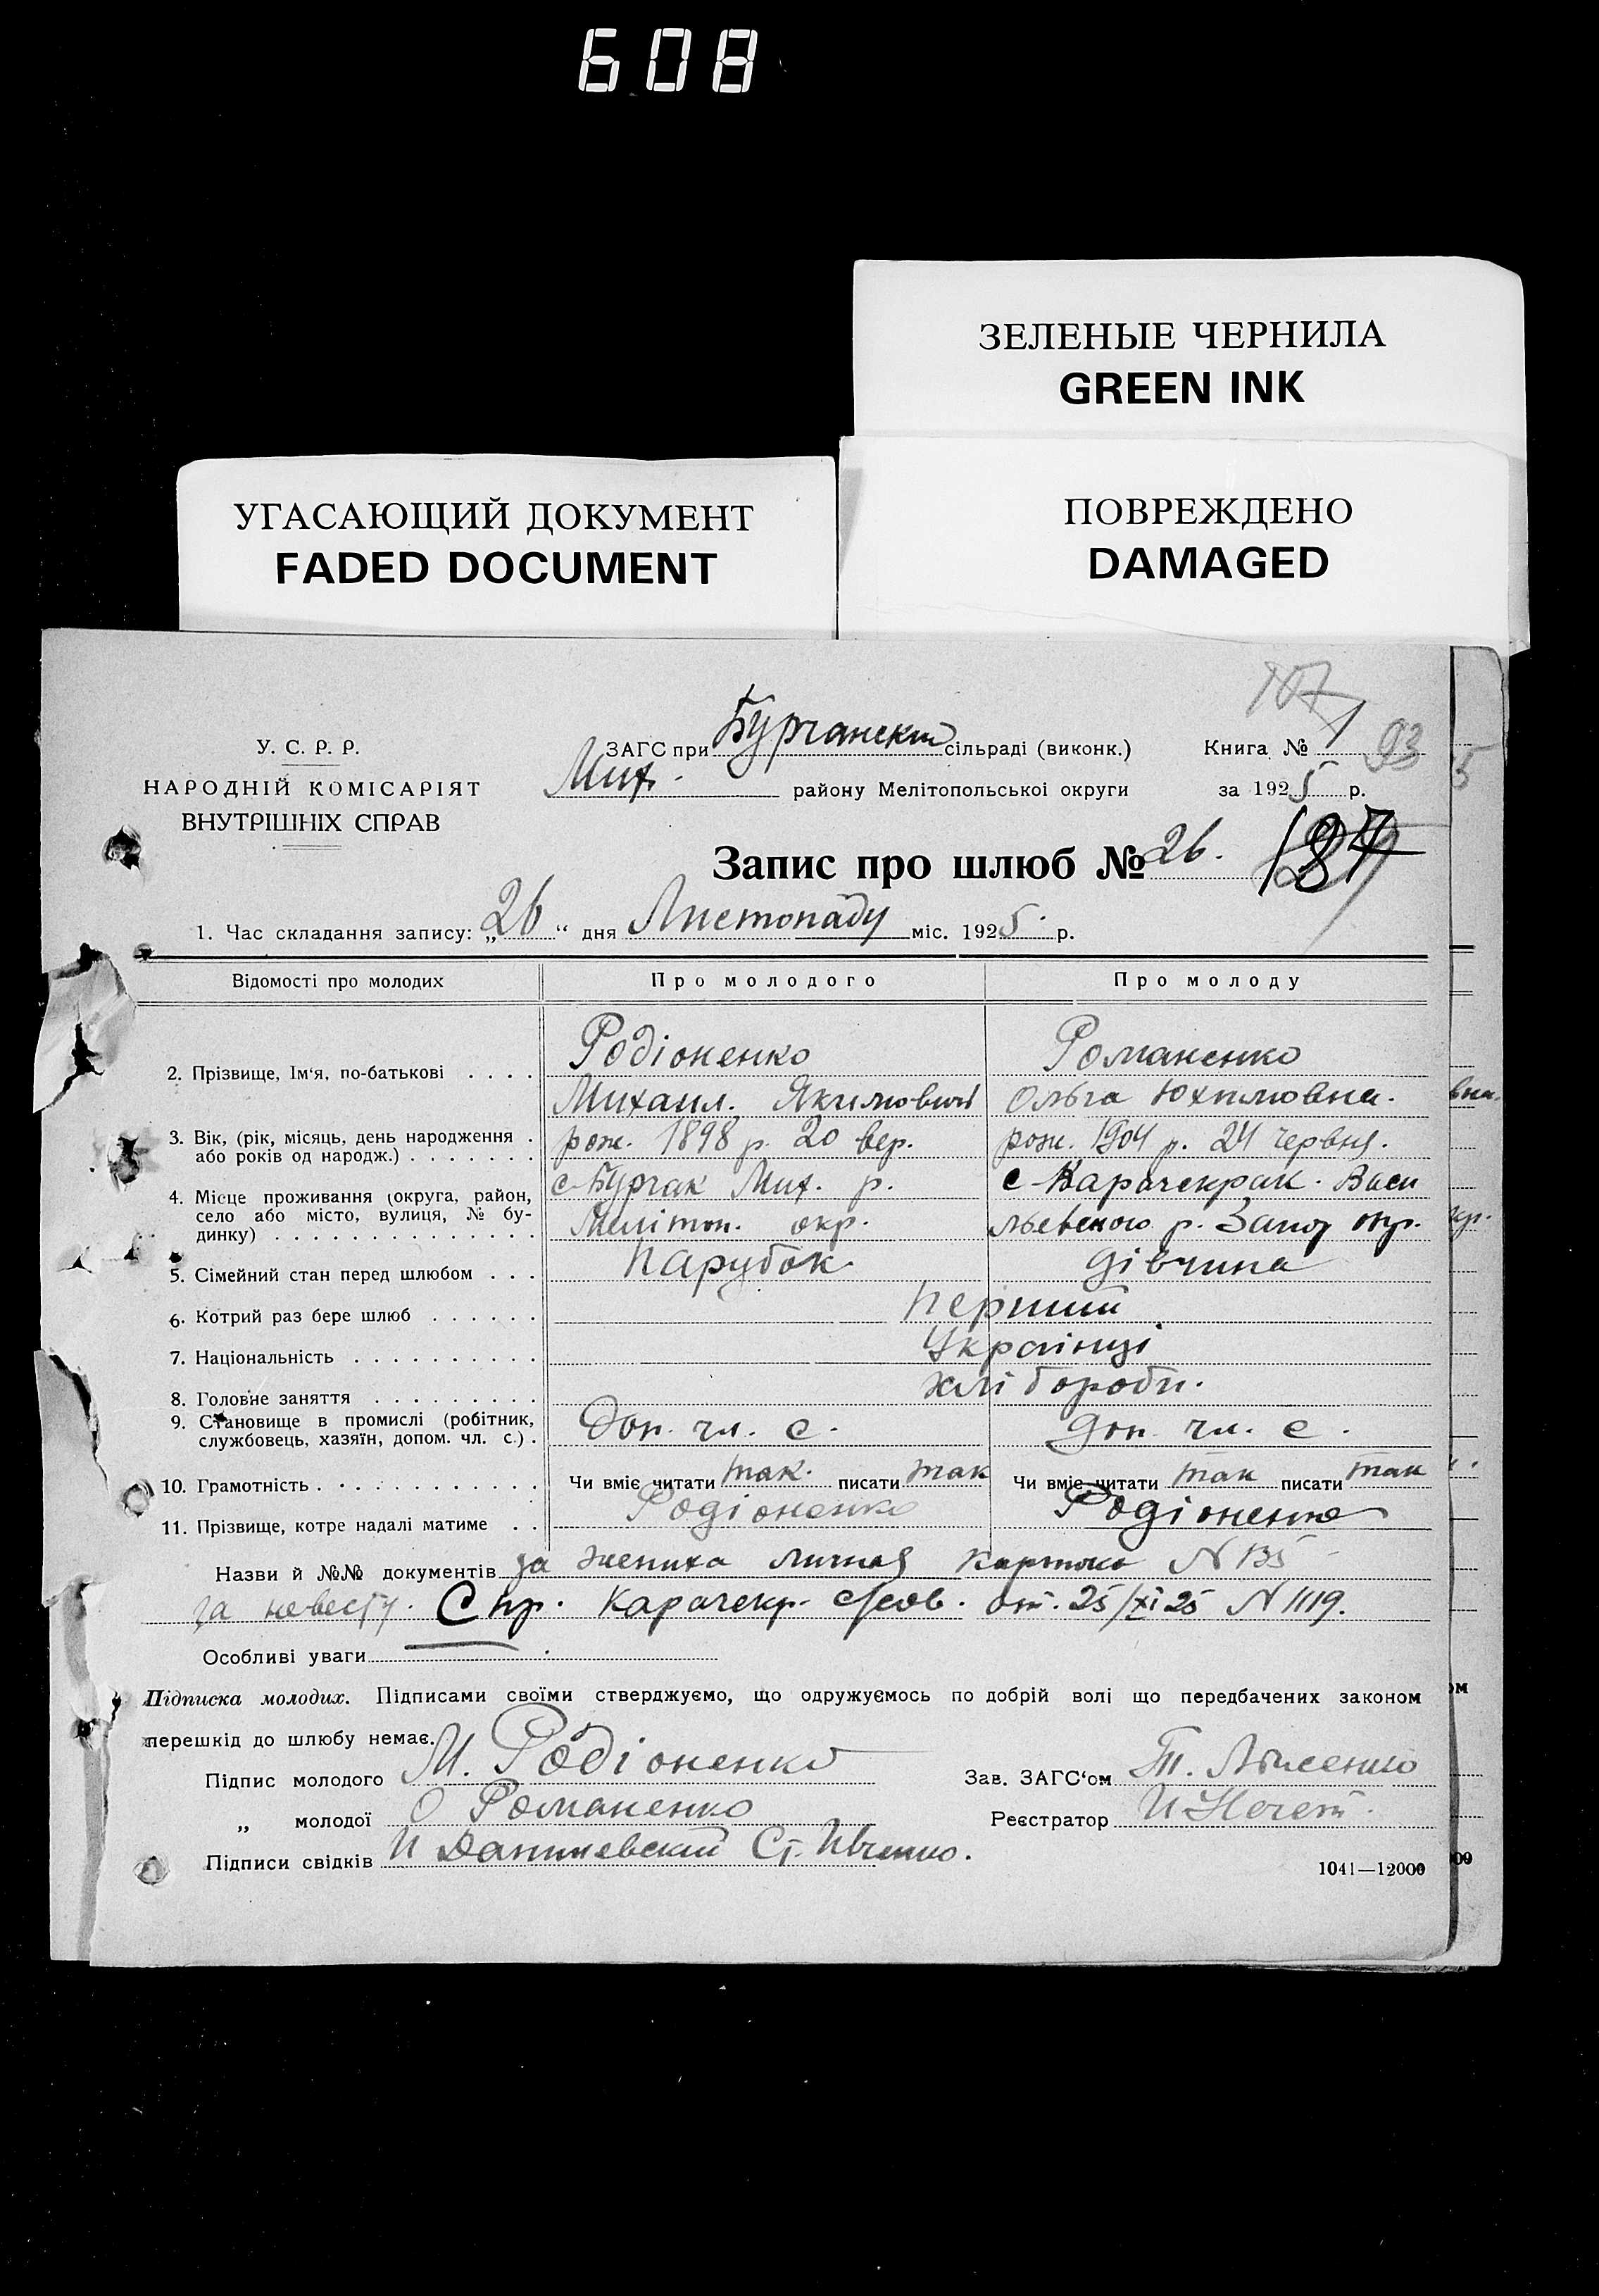 608
ЗЕЛЕНЫЕ ЧЕРНИЛА
GREEN INK
УГАСАЮЩИЙ ДОКУМЕНТ
FADED DOCUMENT
ПОВРЕЖДЕНО
DAMAGED
107
У. С. Р. Р.
НАРОДНІЙ КОМІСАРІЯТ
ВНУТРІШНІХ СПРАВ
ЗАГС при Бурчанскій сільраді (виконк.)
Мих. району Мелітопольської округи
Книга № 1 93
за 1925 р.
Запис про шлюб № 26. 187
1. Час складання запису: „26“ дня Листопаду міс. 1925 р.
Відомості про молодих Про молодого Про молоду
2. Прізвище, Ім‘я, по-батькові . . . . Родіоненко Романенко
Михаил. Якимович Ольга Юхимовна.
3. Вік, (рік, місяць, день народження . рож. 1898 р. 20 вер. рож. 1904 р. 24 червня.
або років од народж.) . . . . . . .
4. Місце проживання (округа, район, с-Бурчак Мих. р. с-Карачекрак. Васи
село або місто, вулиця, № бу- Мелітоп. окр. льевского р. Запор окр.
динку) . . . . . . . . . . . . . .
5. Сімейний стан перед шлюбом . . . Парубок. дівчина
6. Котрий раз бере шлюб . . . . . . Перший
7. Національність . . . . . . . . . . Українці
8. Головне заняття . . . . . . . . . хліборобн.
9. Становище в промислі (робітник, Доп. чл. с. доп. чл. с.
службовець, хазяїн, допом. чл. с.) .
10. Грамотність . . . . . . . . . . . . Чи вміє читати так. писати так Чи вміє читати так писати так
11. Прізвище, котре надалі матиме . . Родіоненко Родіоненко
Назви й №№ документів за жениха личная карточка N 135
за невесту. Спр. Карачекр. с/сов. от. 25/XI 25 N 1119.
Особливі уваги
Підписка молодих. Підписами своїми стверджуємо, що одружуємось по добрій волі що передбачених законом
перешкід до шлюбу немає.
Підпис молодого М. Родіоненко Зав. ЗАГС‘ом Т. Лысенко
„ молодої О Романенко Реєстратор И
Підписи свідків И Данилевский Ст. Ивченко.
1041—12000